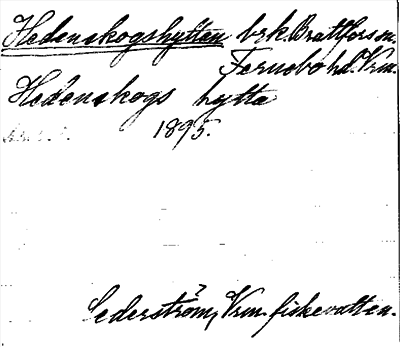 Hedenskogshyttan brk. Brattfors sn.
Fernebo hd. Vrm.
Hedenskogs hytta
1895.
Cederström, Vrm. fiskevatten.